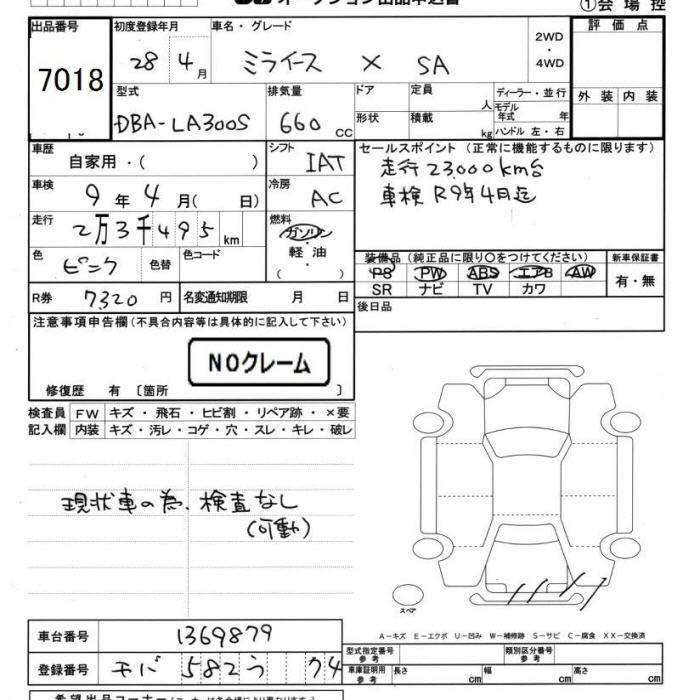 ①会場控
出品番号 初度登録年月 車名・グレード 2WD・4WD 評価点
7018 28 4月 ミライース X SA
型式 排気量 ドア 定員 人 ディーラー・並行 外装 内装
DBA-LA300S 660cc 形状 積載 kg モデル年式 年 ハンドル 左・右
車歴 自家用・( ) シフト IAT セールスポイント (正常に機能するものに限ります)
走行23,000km台
車検 9年4月( 日) 冷房 AC 車検 R9年4月迄
走行 2万3千495km 燃料 ガソリン・軽油 ( )
色 ピンク 色替 色コード 装備品 (純正品に限り○をつけてください) 新車保証書
PS PW ABS エアB AW 有・無
SR ナビ TV カワ
R券 7320円 名変通知期限 月 日 後日品
注意事項申告欄(不具合内容等は具体的に記入して下さい)
NOクレーム
修復歴 有 〔箇所 〕
検査員 FW キズ・飛石・ヒビ割・リペア跡・×要
記入欄 内装 キズ・汚レ・コゲ・穴・スレ・キレ・破レ
現状車の為、検査なし
(可動)
スペア
A-キズ E-エクボ U-凹み W-補修跡 S-サビ C-腐食 XX-交換済
車台番号 1369879 型式指定番号 参考 類別区分番号 参考
登録番号 チバ 582 う 74 車庫証明用 参考 長さ cm 幅 cm 高さ cm